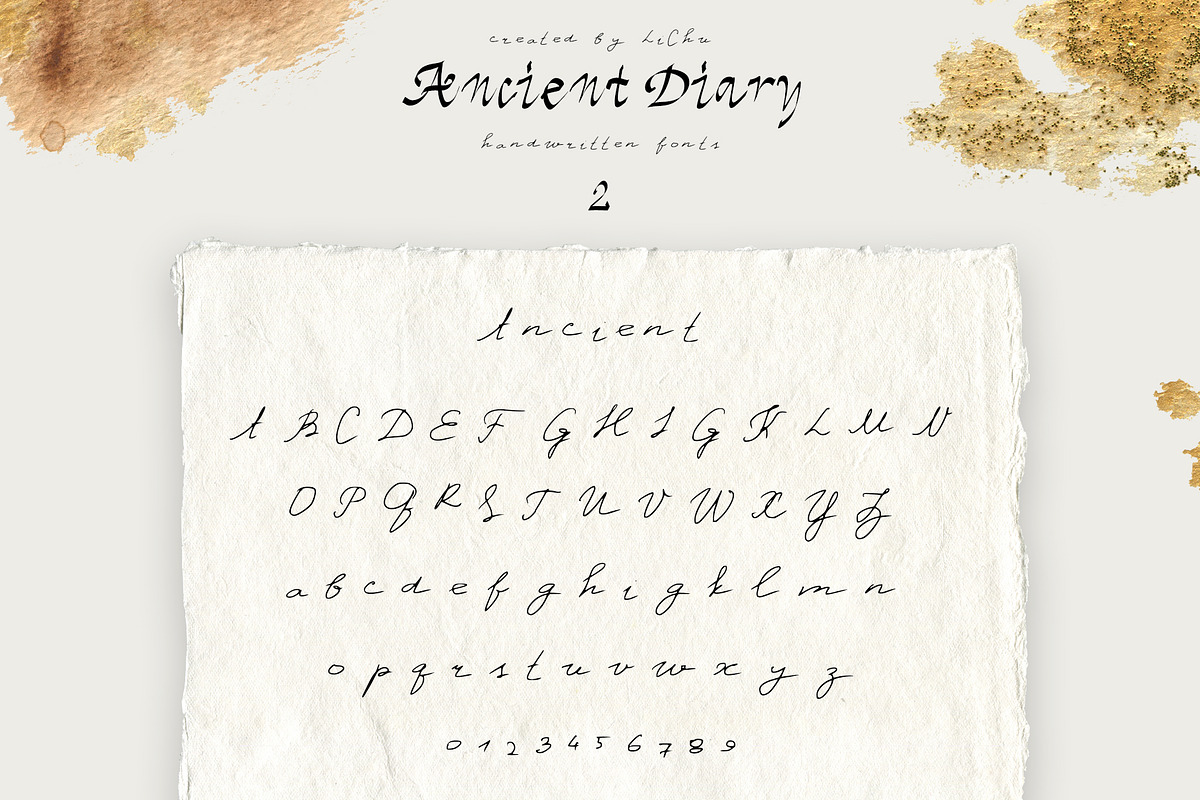 created by LiChu
Ancient Diary
handwritten fonts
2
Ancient
A B C D E F G H I G K L M N
O P Q R S T U V W X Y Z
a b c d e f g h i g k l m n
o p q r s t u v w x y z
0 1 2 3 4 5 6 7 8 9